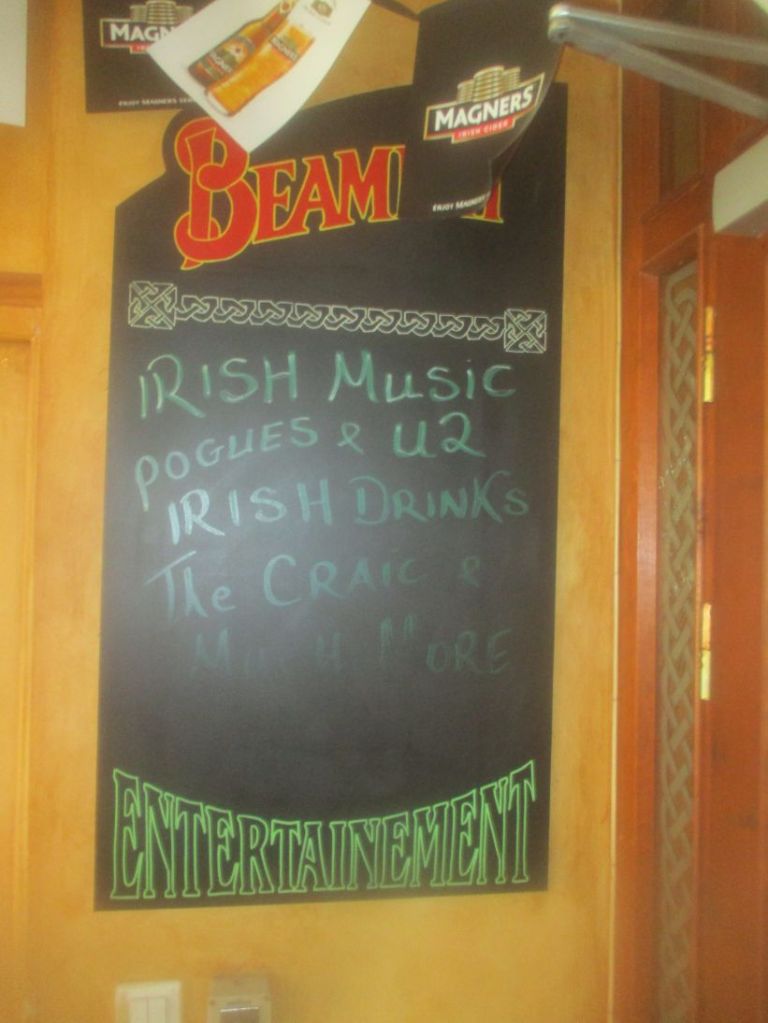 MAGN
ENJOY MAGNERS
MAGNERS
IRISH CIDER
ENJOY MAGNERS
BEAM
IRISH MUSIC
POGUES & U2
IRISH DRINKS
The CRAIC &
MUCH MORE
ENTERTAINEMENT